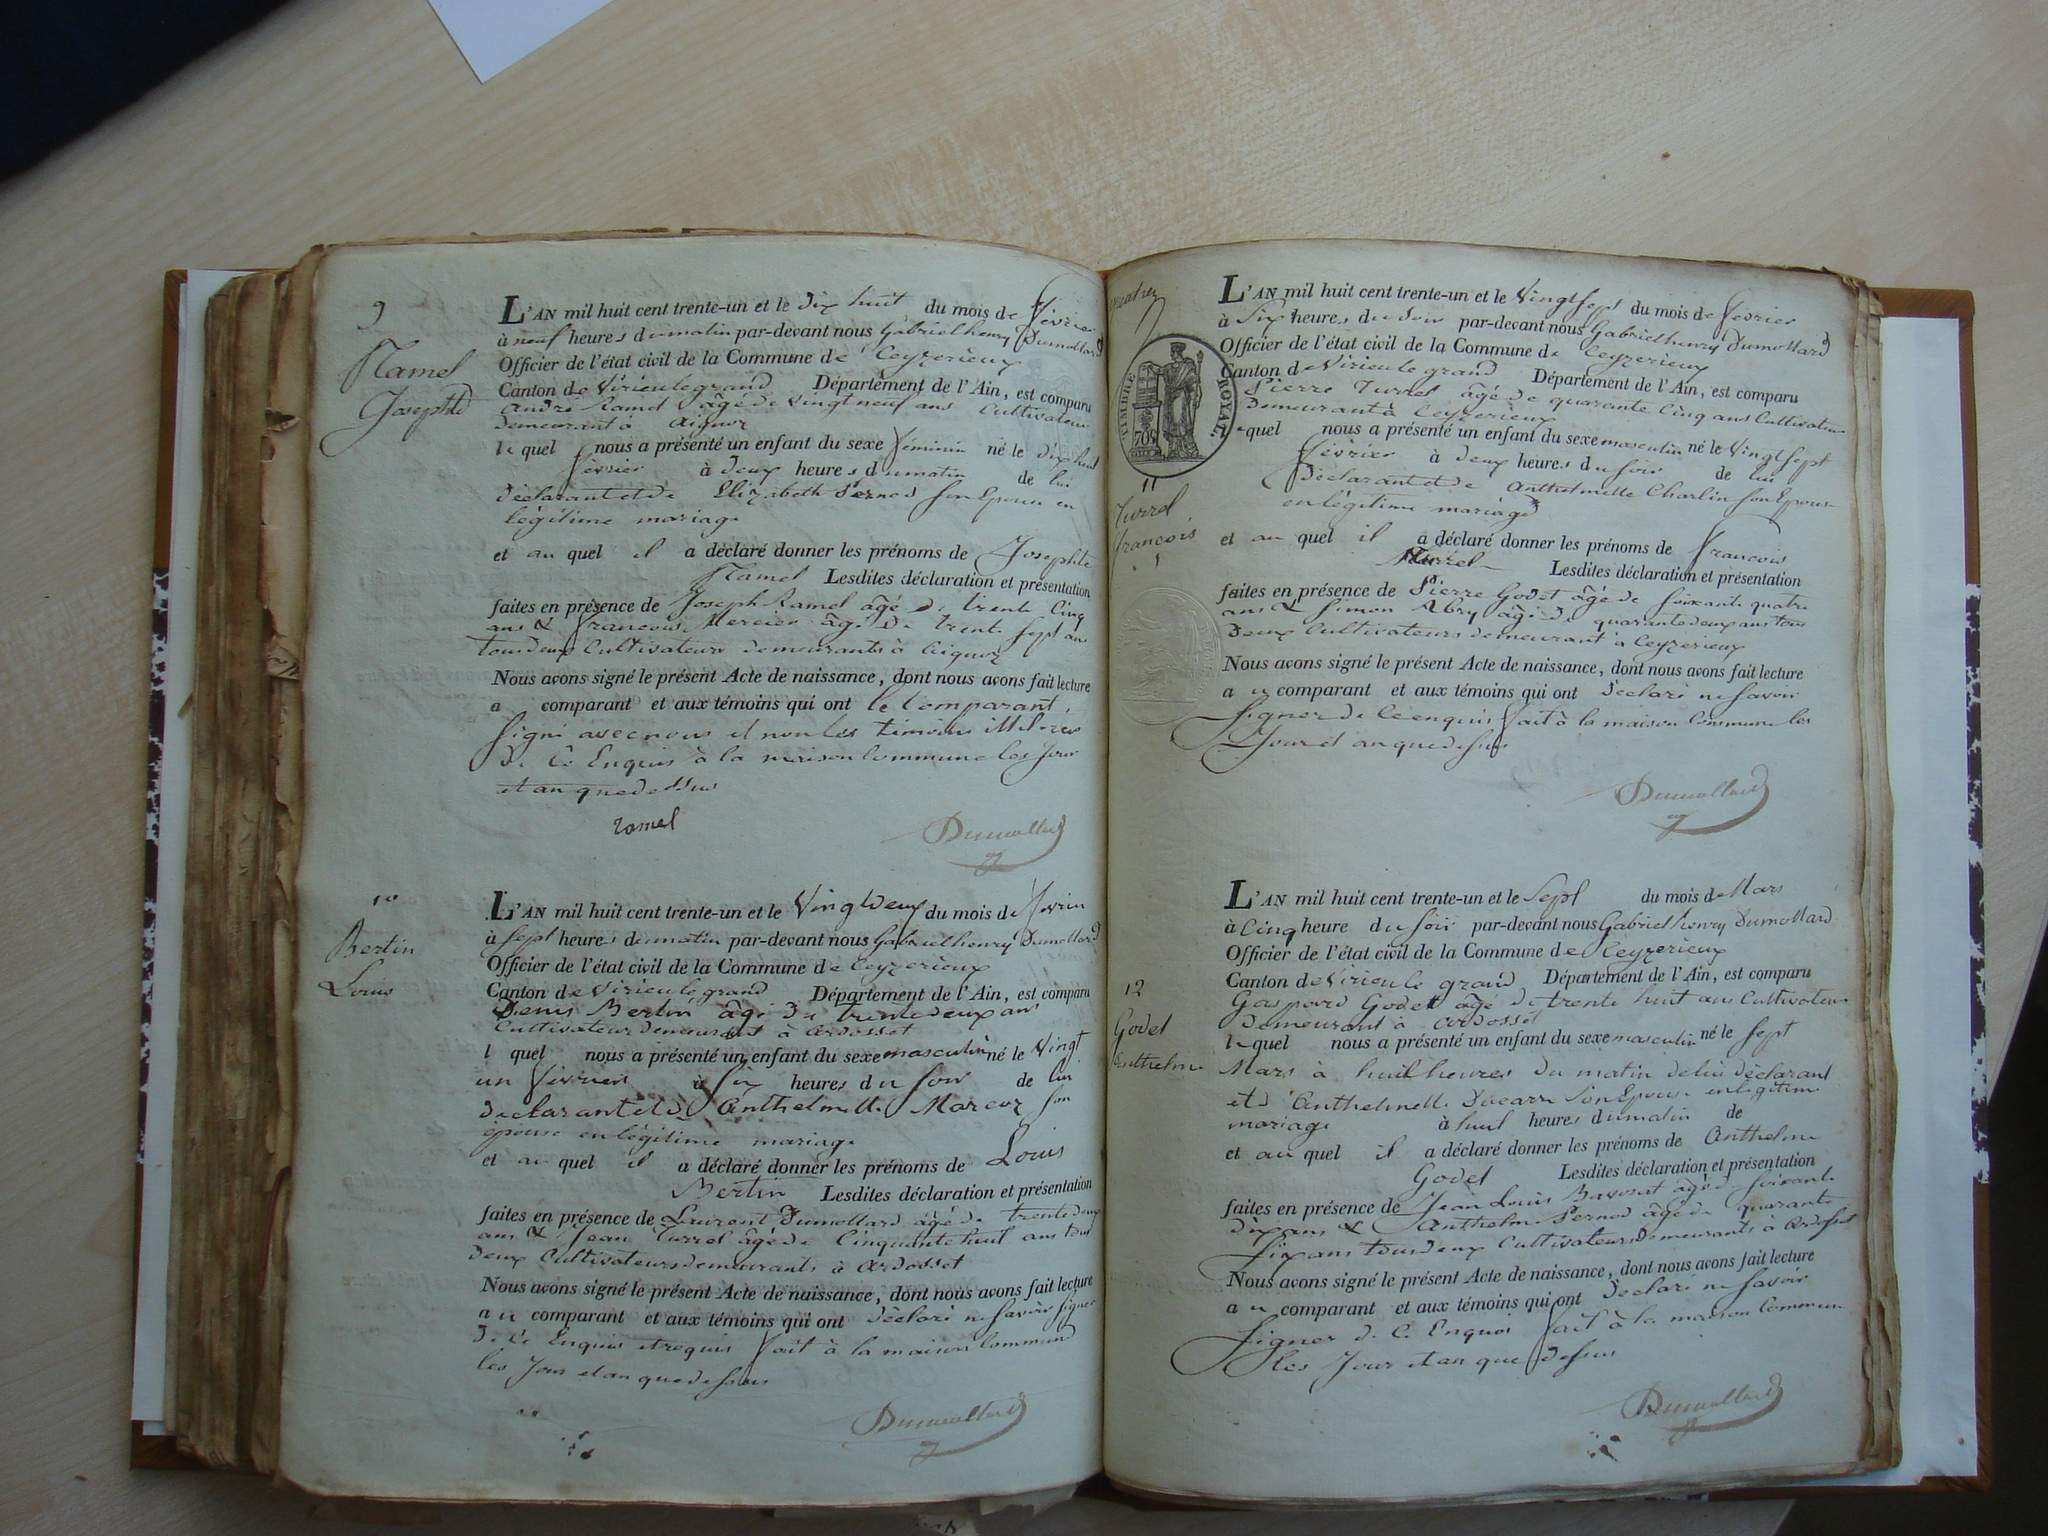 9
Ramel
Josephte
L'AN mil huit cent trente-un et le dix huit du mois de Février
à neuf heures du matin par-devant nous Gabriel henry Dumollard
Officier de l'état civil de la Commune de Ceyzerieux
Canton de Virieu le grand Département de l'Ain, est comparu
André Ramel âgé de vingt neuf ans Cultivateur
demeurant à Aignoz
le quel nous a présenté un enfant du sexe féminin né le dix huit
février à deux heures du matin de lui
déclarant et de Elizabeth Pernod son Epouse en
légitime mariage
et au quel il a déclaré donner les prénoms de Josephte
Ramel Lesdites déclaration et présentation
faites en présence de Joseph Ramel âgé de trente Cinq
ans & francois Mercier âgé de trente sept ans
tous deux Cultivateurs demeurants à Aignoz
Nous avons signé le présent Acte de naissance, dont nous avons fait lecture
a comparant et aux témoins qui ont le Comparant
signé avec nous et non les témoins illiteres
de Ce Enquis à la maison Commune les Jour
et an que dessus
ramel
Dumollard
10
Bertin
Louis
L'AN mil huit cent trente-un et le Vingt deux du mois de Février
à Sept heures du matin par-devant nous Gabriel henry Dumollard
Officier de l'état civil de la Commune de Ceyzerieux
Canton de Virieu le grand Département de l'Ain, est comparu
Denis Bertin âgé de trente deux ans
Cultivateur demeurant à ardosset
l quel nous a présenté un enfant du sexe masculin né le Vingt
un février à Six heures du Soir de lui
déclarant et de Anthelmette Marcoz son
épouse en légitime mariage
et au quel il a déclaré donner les prénoms de Louis
Bertin Lesdites déclaration et présentation
faites en présence de Laurent Dumollard âgé de trente deux
ans & Jean Turrel âgé de Cinquante huit ans tous
deux Cultivateurs demeurants à ardosset
Nous avons signé le présent Acte de naissance, dont nous avons fait lecture
a u comparant et aux témoins qui ont déclaré ne savoir signer
de Ce Enquis et requis fait à la maison Commune
les Jour et an que dessus
Dumollard
TIMBRE ROYAL.
11
Turrel
francois
L'AN mil huit cent trente-un et le Vingt Sept du mois de février
à Six heures du Soir par-devant nous Gabriel henry Dumollard
Officier de l'état civil de la Commune de Ceyzerieux
Canton de Virieu le grand Département de l'Ain, est comparu
Pierre Turrel âgé de quarante Cinq ans Cultivateur
demeurant à Ceyzerieux
le quel nous a présenté un enfant du sexe masculin né le Vingt Sept
février à deux heures du Soir de lui
déclarant et de Anthelmette Charlin son Epouse
en légitime mariage
et au quel il a déclaré donner les prénoms de francois
Turrel Lesdites déclaration et présentation
faites en présence de Pierre Godet âgé de soixante quatre
ans & Simon Abry âgé de quarante deux ans tous
deux Cultivateurs demeurant à Ceyzerieux
Nous avons signé le présent Acte de naissance, dont nous avons fait lecture
a u comparant et aux témoins qui ont déclaré ne savoir
signer de Ce enquis fait à la maison Commune les
Jour et an que dessus
Dumollard
12
Godet
Anthelme
L'AN mil huit cent trente-un et le Sept du mois de Mars
à Cinq heure du Soir par-devant nous Gabriel henry Dumollard
Officier de l'état civil de la Commune de Ceyzerieux
Canton de Virieu le grand Département de l'Ain, est comparu
Gaspard Godet âgé de trente huit ans Cultivateur
demeurant à ardosset
le quel nous a présenté un enfant du sexe masculin né le Sept
Mars à huit heures du matin de lui déclarant
et d Anthelmette son Epouse en légitime
mariage à huit heures du matin de
et au quel il a déclaré donner les prénoms de Anthelme
Godet Lesdites déclaration et présentation
faites en présence de Jean Louis âgé de soixante
dix ans & Anthelme Pernod âgé de quarante
Six ans tous deux Cultivateurs demeurants à ardosset
Nous avons signé le présent Acte de naissance, dont nous avons fait lecture
a u comparant et aux témoins qui ont déclaré ne savoir
Signer de Ce Enquis fait à la maison Commune
les Jour et an que dessus
Dumollard